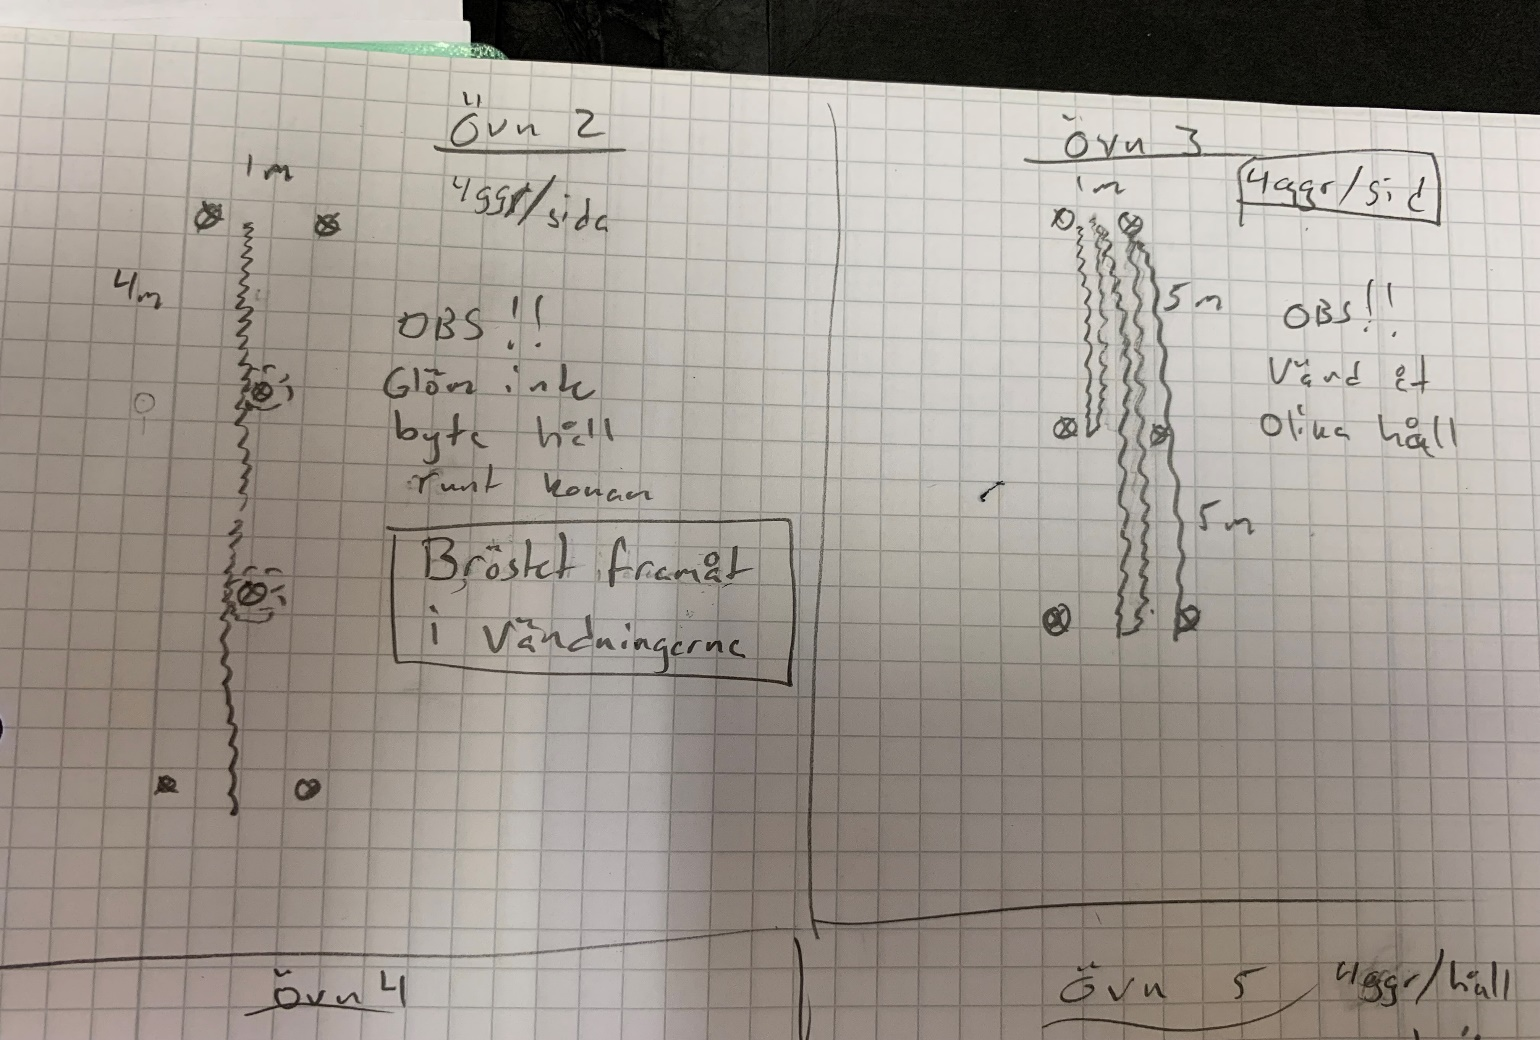 Övn 2
1m
4ggr/sida
4m
OBS!!
Glöm ink
byta håll
runt konan
Bröstet framåt
i vändningarna
Övn 3
1m
4ggr/sid
5m
OBS!!
Vänd åt
Olika håll
5m
Övn 4
Övn 5
4ggr/håll